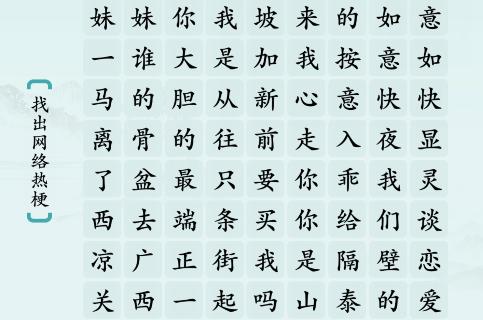 找出网络热梗
妹妹你我坡来的如意
一谁大是加我按意如
马的胆从新心意快快
离骨的往前走入夜显
了盆最只要你乖我灵
西去端条买你给们谈
凉广正街我是隔壁恋
关西一起吗山泰的爱